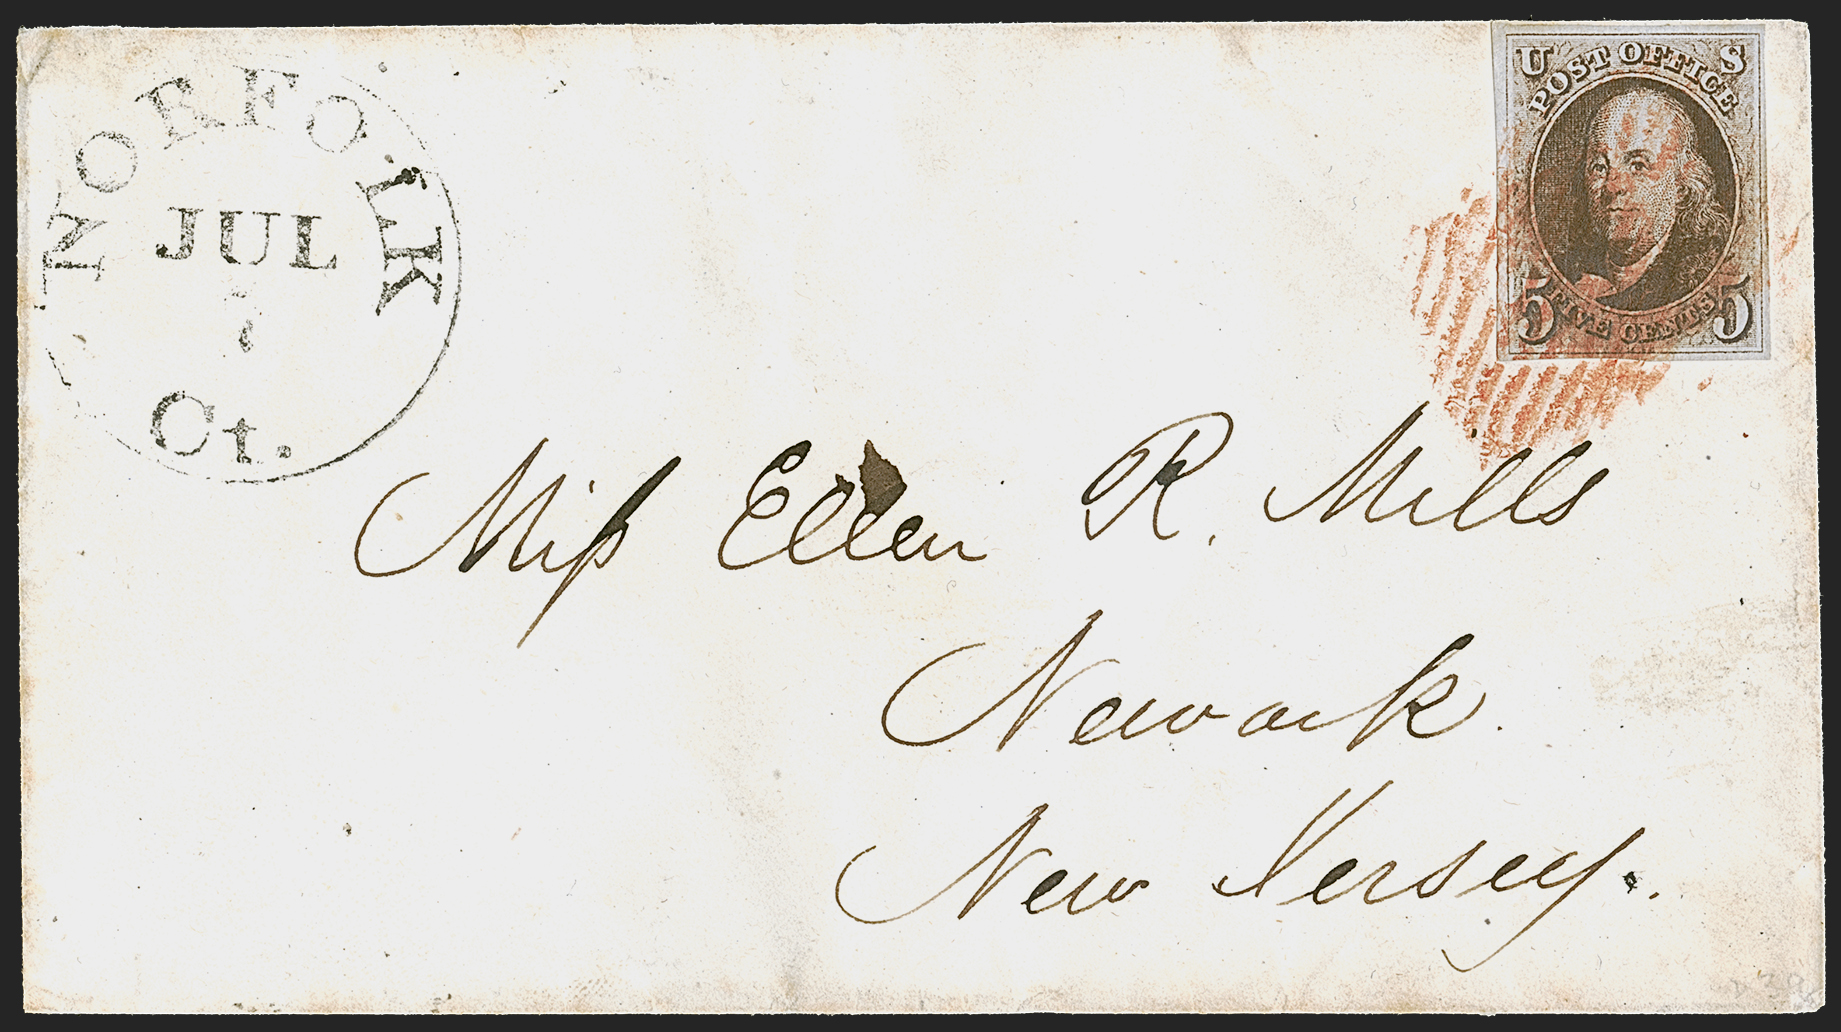 NORFOLK
JUL
7
Ct.
U S
POST OFFICE
5 FIVE CENTS 5
Miſs Ellen R. Mills
Newark
New Jersey.